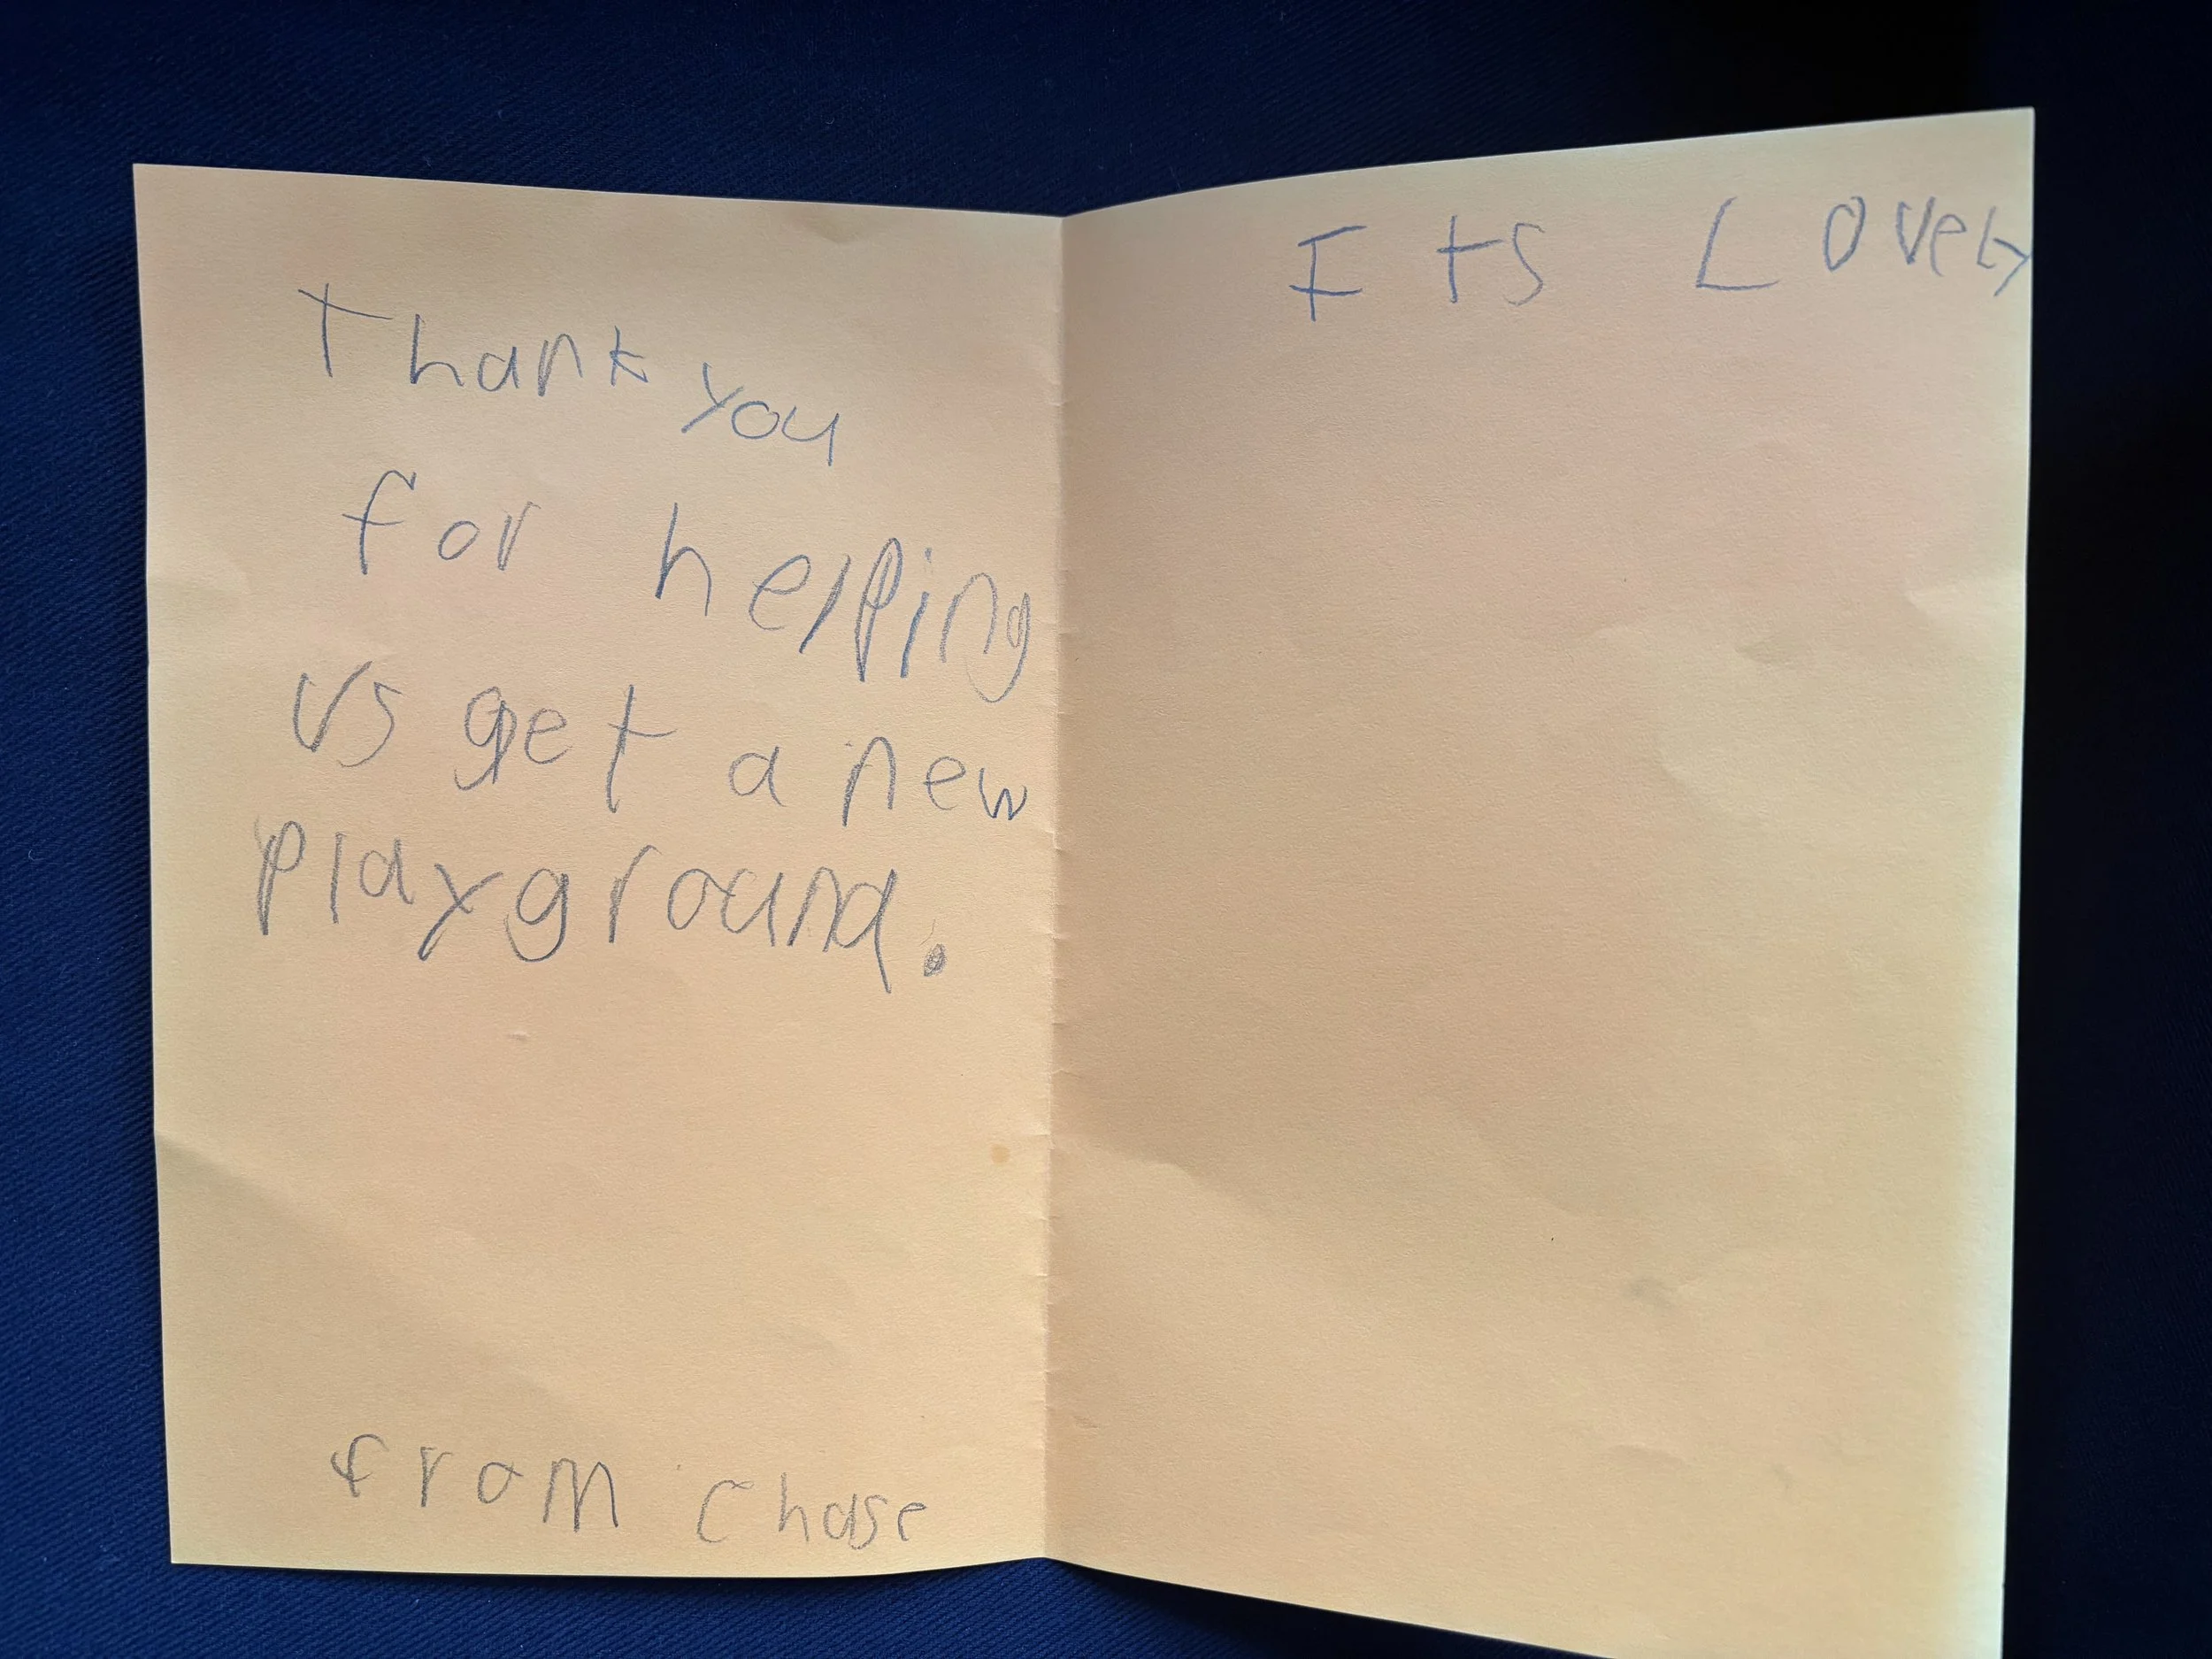 Thank you
for helping
us get a new
playground.
from chase
Its Lovely